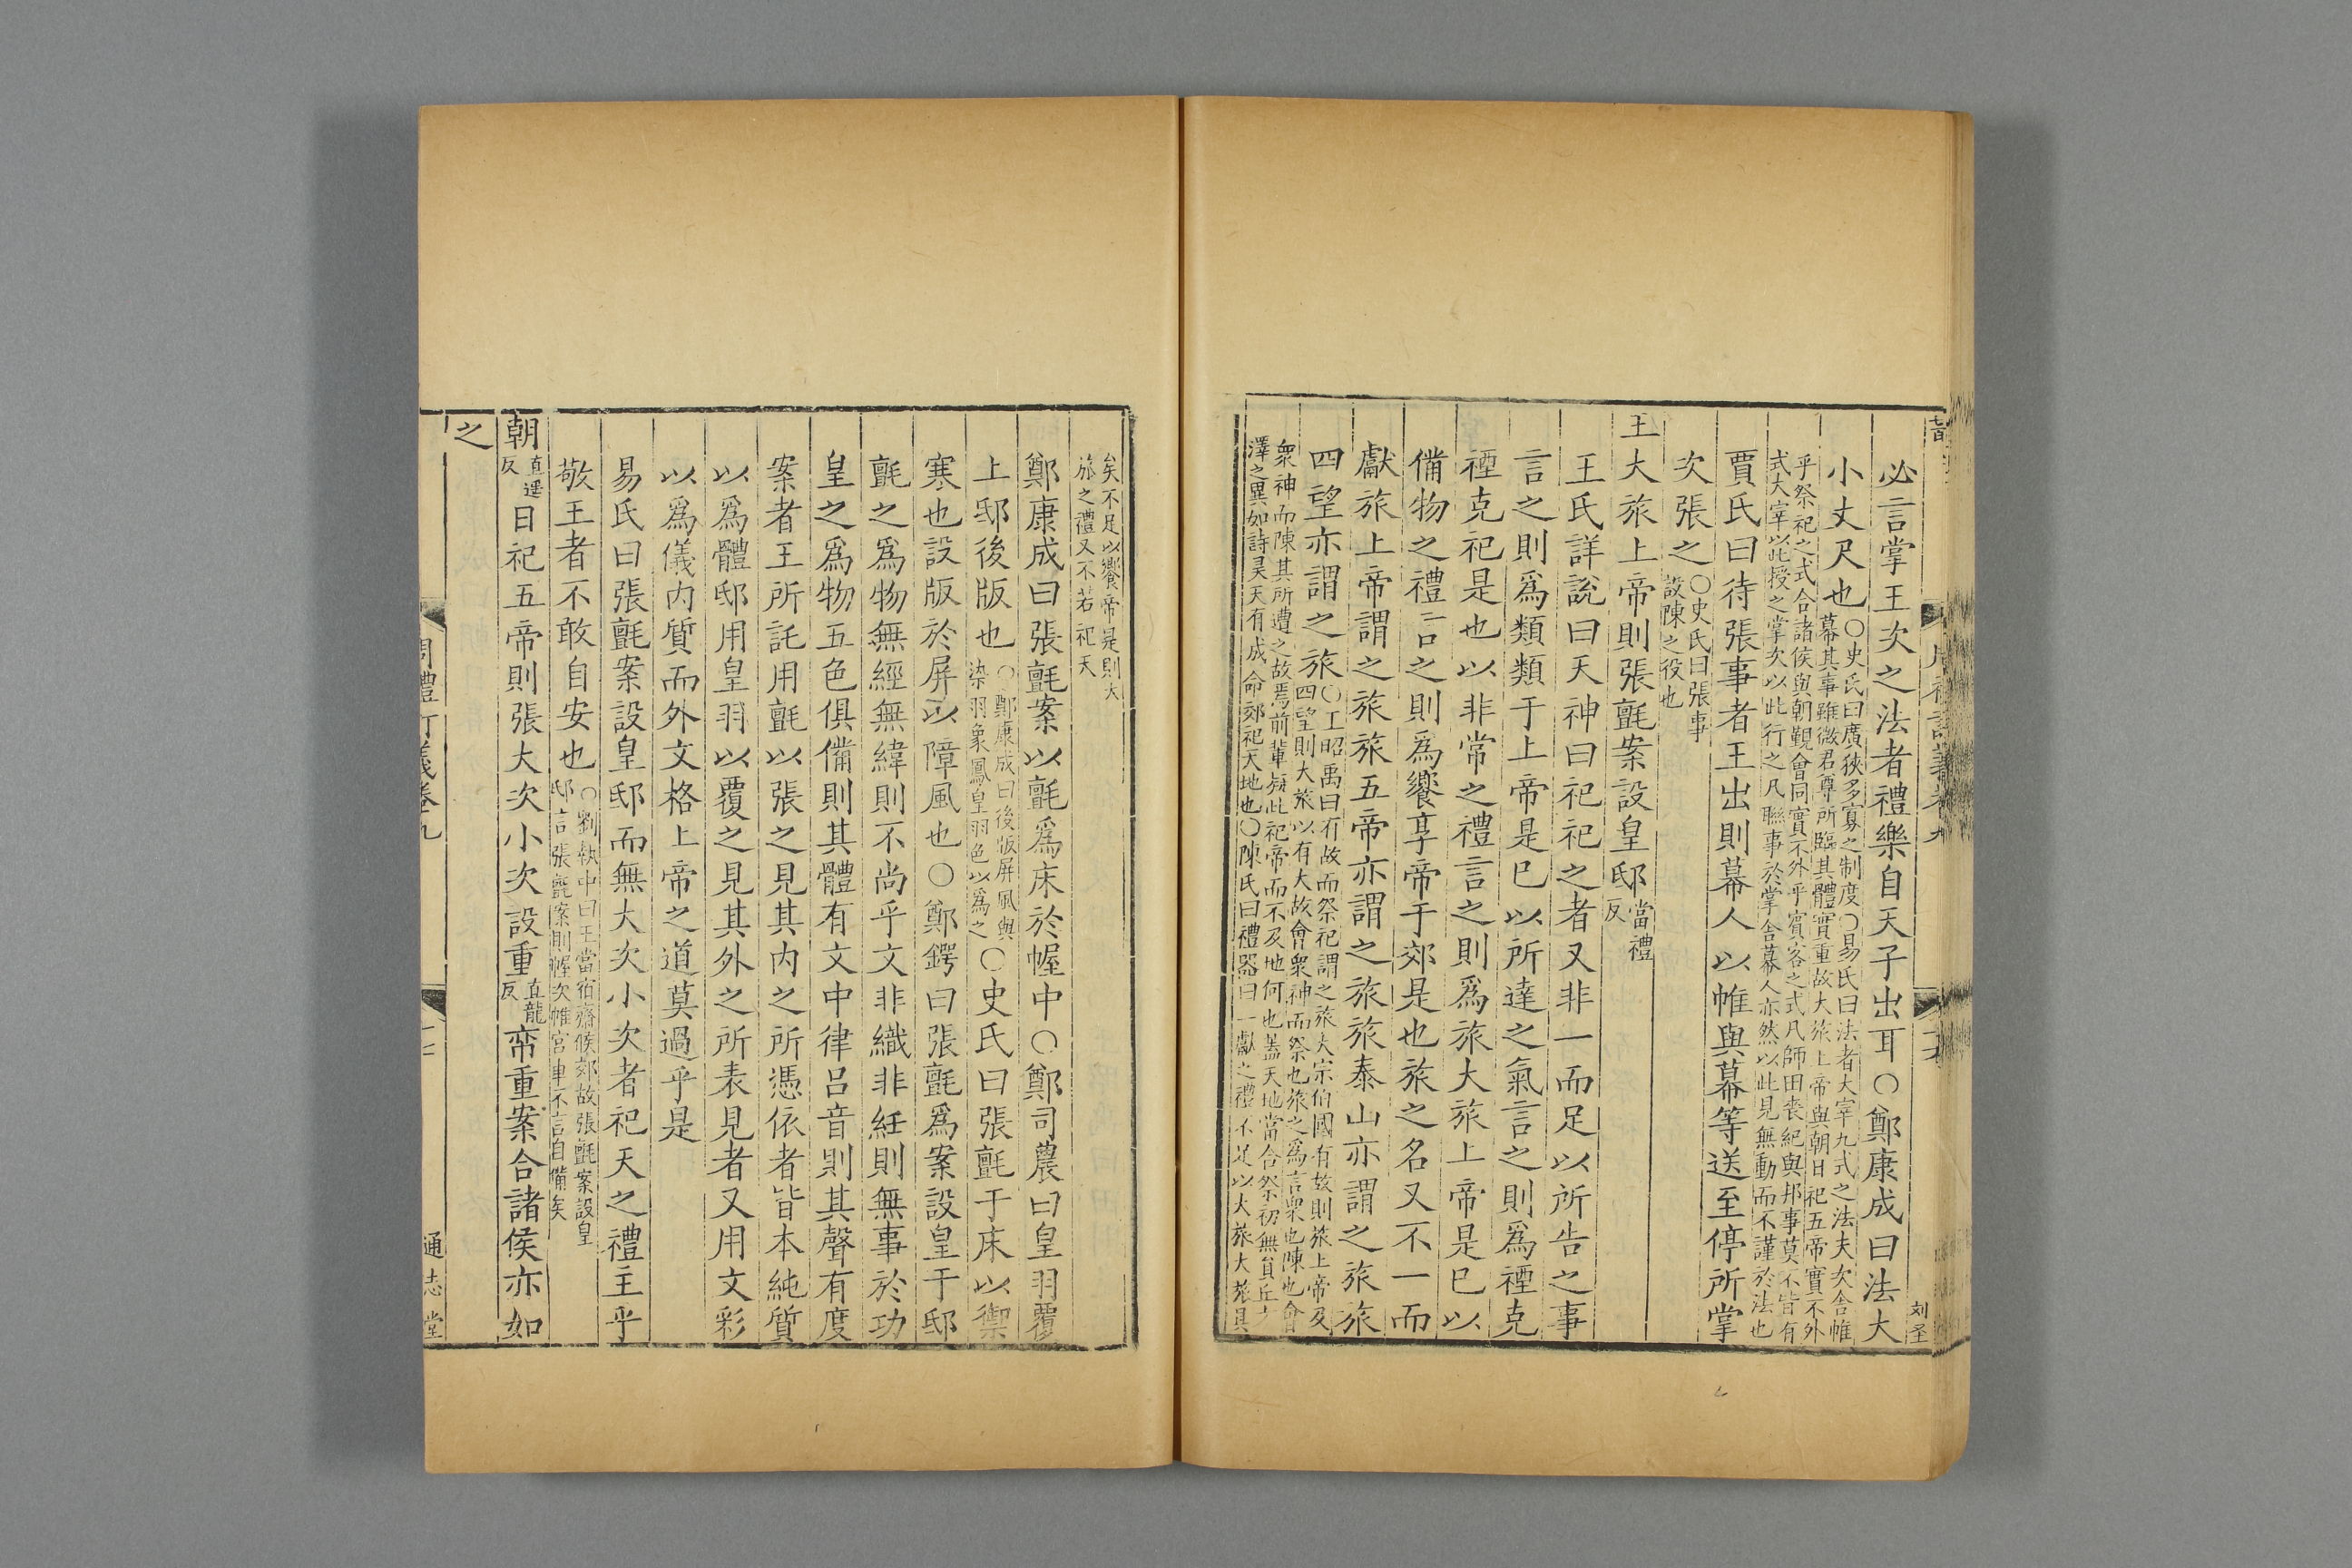 必言掌王次之法者禮樂自天子出耳○鄭康成曰法大
小丈尺也○史氏曰廣狹多寡之制度○易氏曰法者大宰九式之法夫次舍帷
幕其事雖微君尊所臨其體實重故大旅上帝與朝日祀五帝實不外
乎祭祀之式合諸侯與朝覲會同實不外乎賓客之式凡師田喪紀與邦事莫不皆有
式大宰以此授之掌次以此行之凡聯事於掌舍幕人亦然以此見無動而不謹於法也
賈氏曰待張事者王出則幕人以帷與幕等送至停所掌
次張之○史氏曰張事
設陳之役也
王大旅上帝則張氈案設皇邸當禮
反
王氏詳說曰天神曰祀祀之者又非一而足以所告之事
言之則爲類類于上帝是巳以所達之氣言之則爲禋克
禋克祀是也以非常之禮言之則爲旅大旅上帝是巳以
備物之禮言之則爲饗享帝于郊是也旅之名又不一而
獻旅上帝謂之旅旅五帝亦謂之旅旅泰山亦謂之旅旅
四望亦謂之旅○王昭禹曰有故而祭祀謂之旅大宗伯國有故則旅上帝及
四望則大旅以有大故會衆神而祭也旅之爲言衆也陳也會
衆神而陳其所遭之故焉前輩疑此祀帝而不及地何也蓋天地當合祭初無員丘方
澤之異如詩昊天有成命郊祀天地也○陳氏曰禮器曰一獻之禮不足以大旅大旅具
矣不足以饗帝是則大
旅之禮又不若祀天
鄭康成曰張氈案以氈爲床於幄中○鄭司農曰皇羽覆
上邸後版也○鄭康成曰後版屏風與
染羽象鳳皇羽色以爲之○史氏曰張氈于床以禦
寒也設版於屏以障風也○鄭鍔曰張氈爲案設皇于邸
氈之爲物無經無緯則不尚乎文非織非紝則無事於功
皇之爲物五色俱備則其體有文中律呂音則其聲有度
案者王所託用氈以張之見其内之所憑依者皆本純質
以爲體邸用皇羽以覆之見其外之所表見者又用文彩
以爲儀内質而外文格上帝之道莫過乎是
易氏曰張氈案設皇邸而無大次小次者祀天之禮主乎
敬王者不敢自安也○劉執中曰王當宿齋候郊故張氈案設皇
邸言張氈案則幄次帷宮車不言自備矣
朝直遥
反日祀五帝則張大次小次設重直龍
反帟重案合諸侯亦如
之
周禮訂義卷九
通志堂